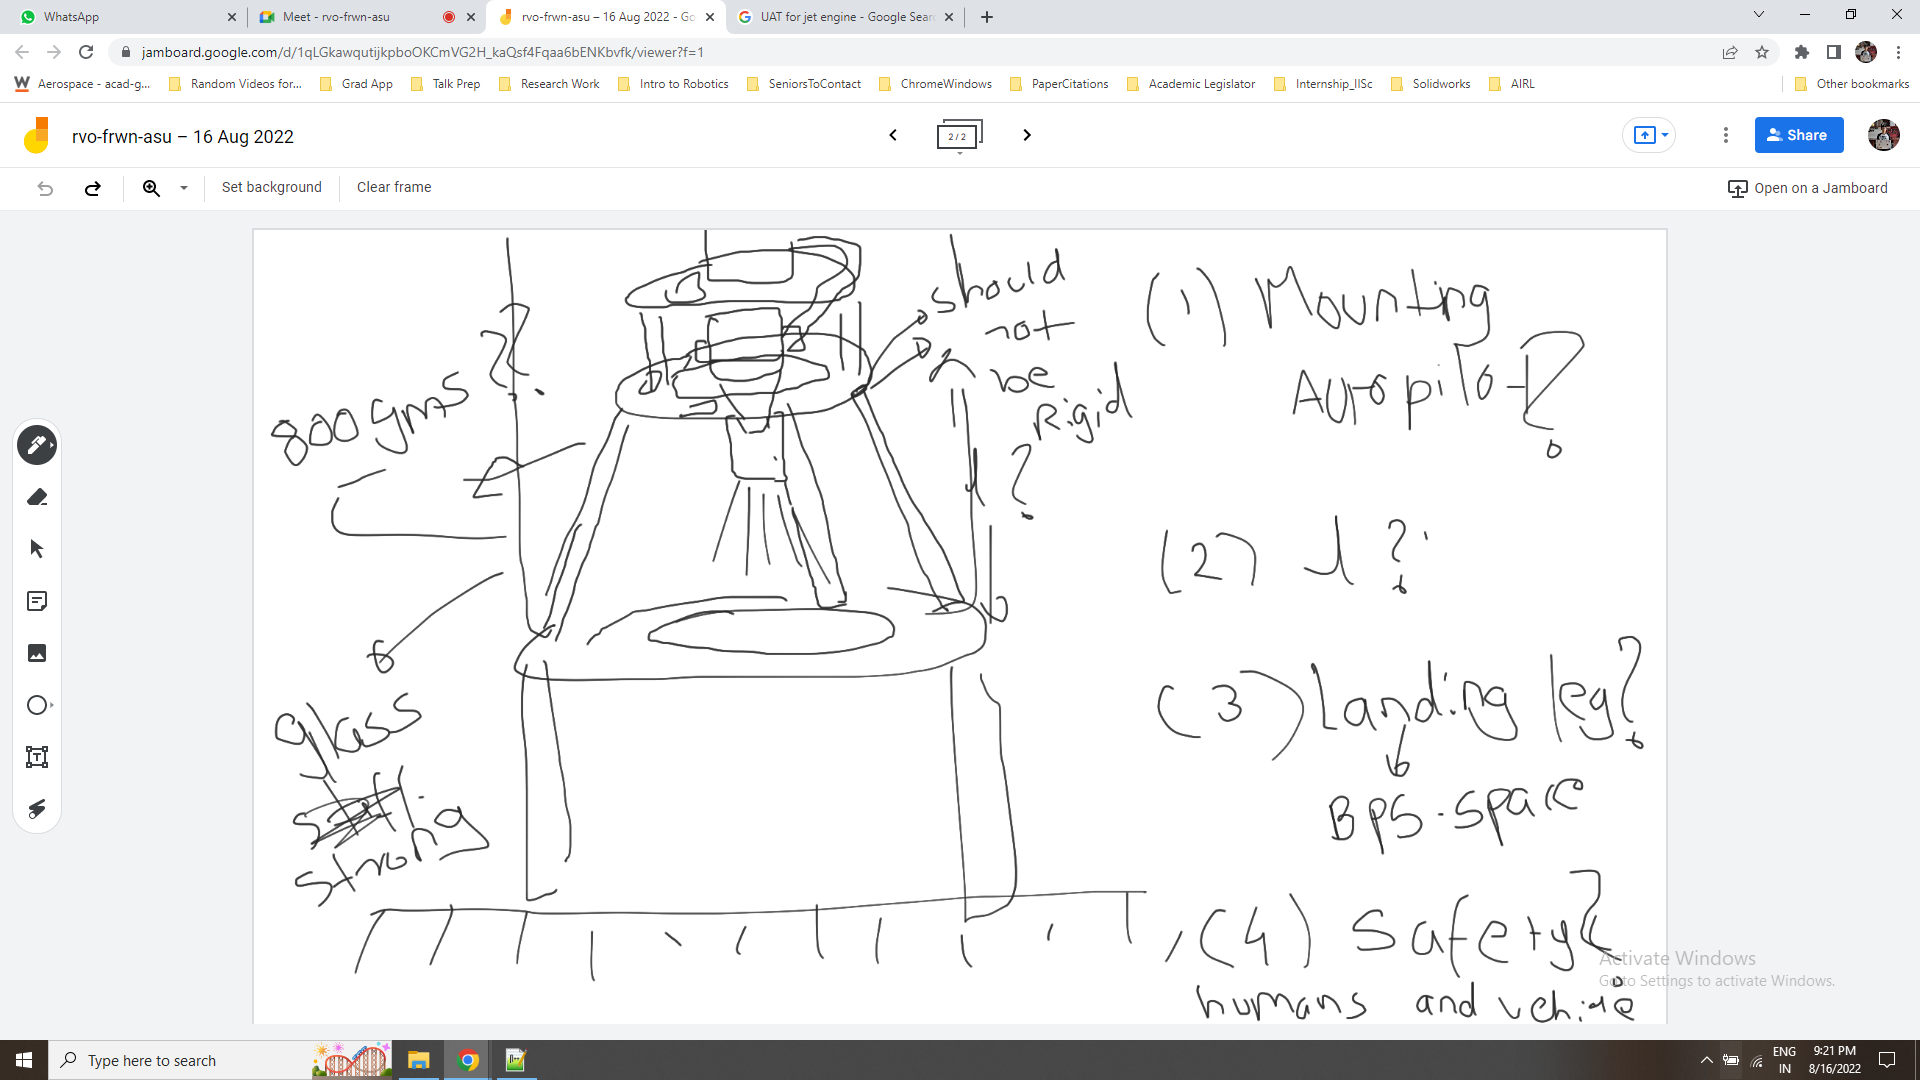 WhatsApp
Meet - rvo-frwn-asu
rvo-frwn-asu – 16 Aug 2022 - Go
UAT for jet engine - Google Sear
jamboard.google.com/d/1qLGkawqutijkpboOKCmVG2H_kaQsf4Fqaa6bENKbvfk/viewer?f=1
Aerospace - acad-g...
Random Videos for...
Grad App
Talk Prep
Research Work
Intro to Robotics
SeniorsToContact
ChromeWindows
PaperCitations
Academic Legislator
Internship_IISc
Solidworks
AIRL
Other bookmarks
rvo-frwn-asu – 16 Aug 2022
2 / 2
Share
Set background
Clear frame
Open on a Jamboard
should
not
be
Rigid
?
800 gms ??
glass
strong
(1) Mounting
Autopilot?
(2) d ?
(3) Landing leg?
BPS.space
(4) Safety?
humans and vehicle
Activate Windows
Go to Settings to activate Windows.
Type here to search
ENG
IN
9:21 PM
8/16/2022